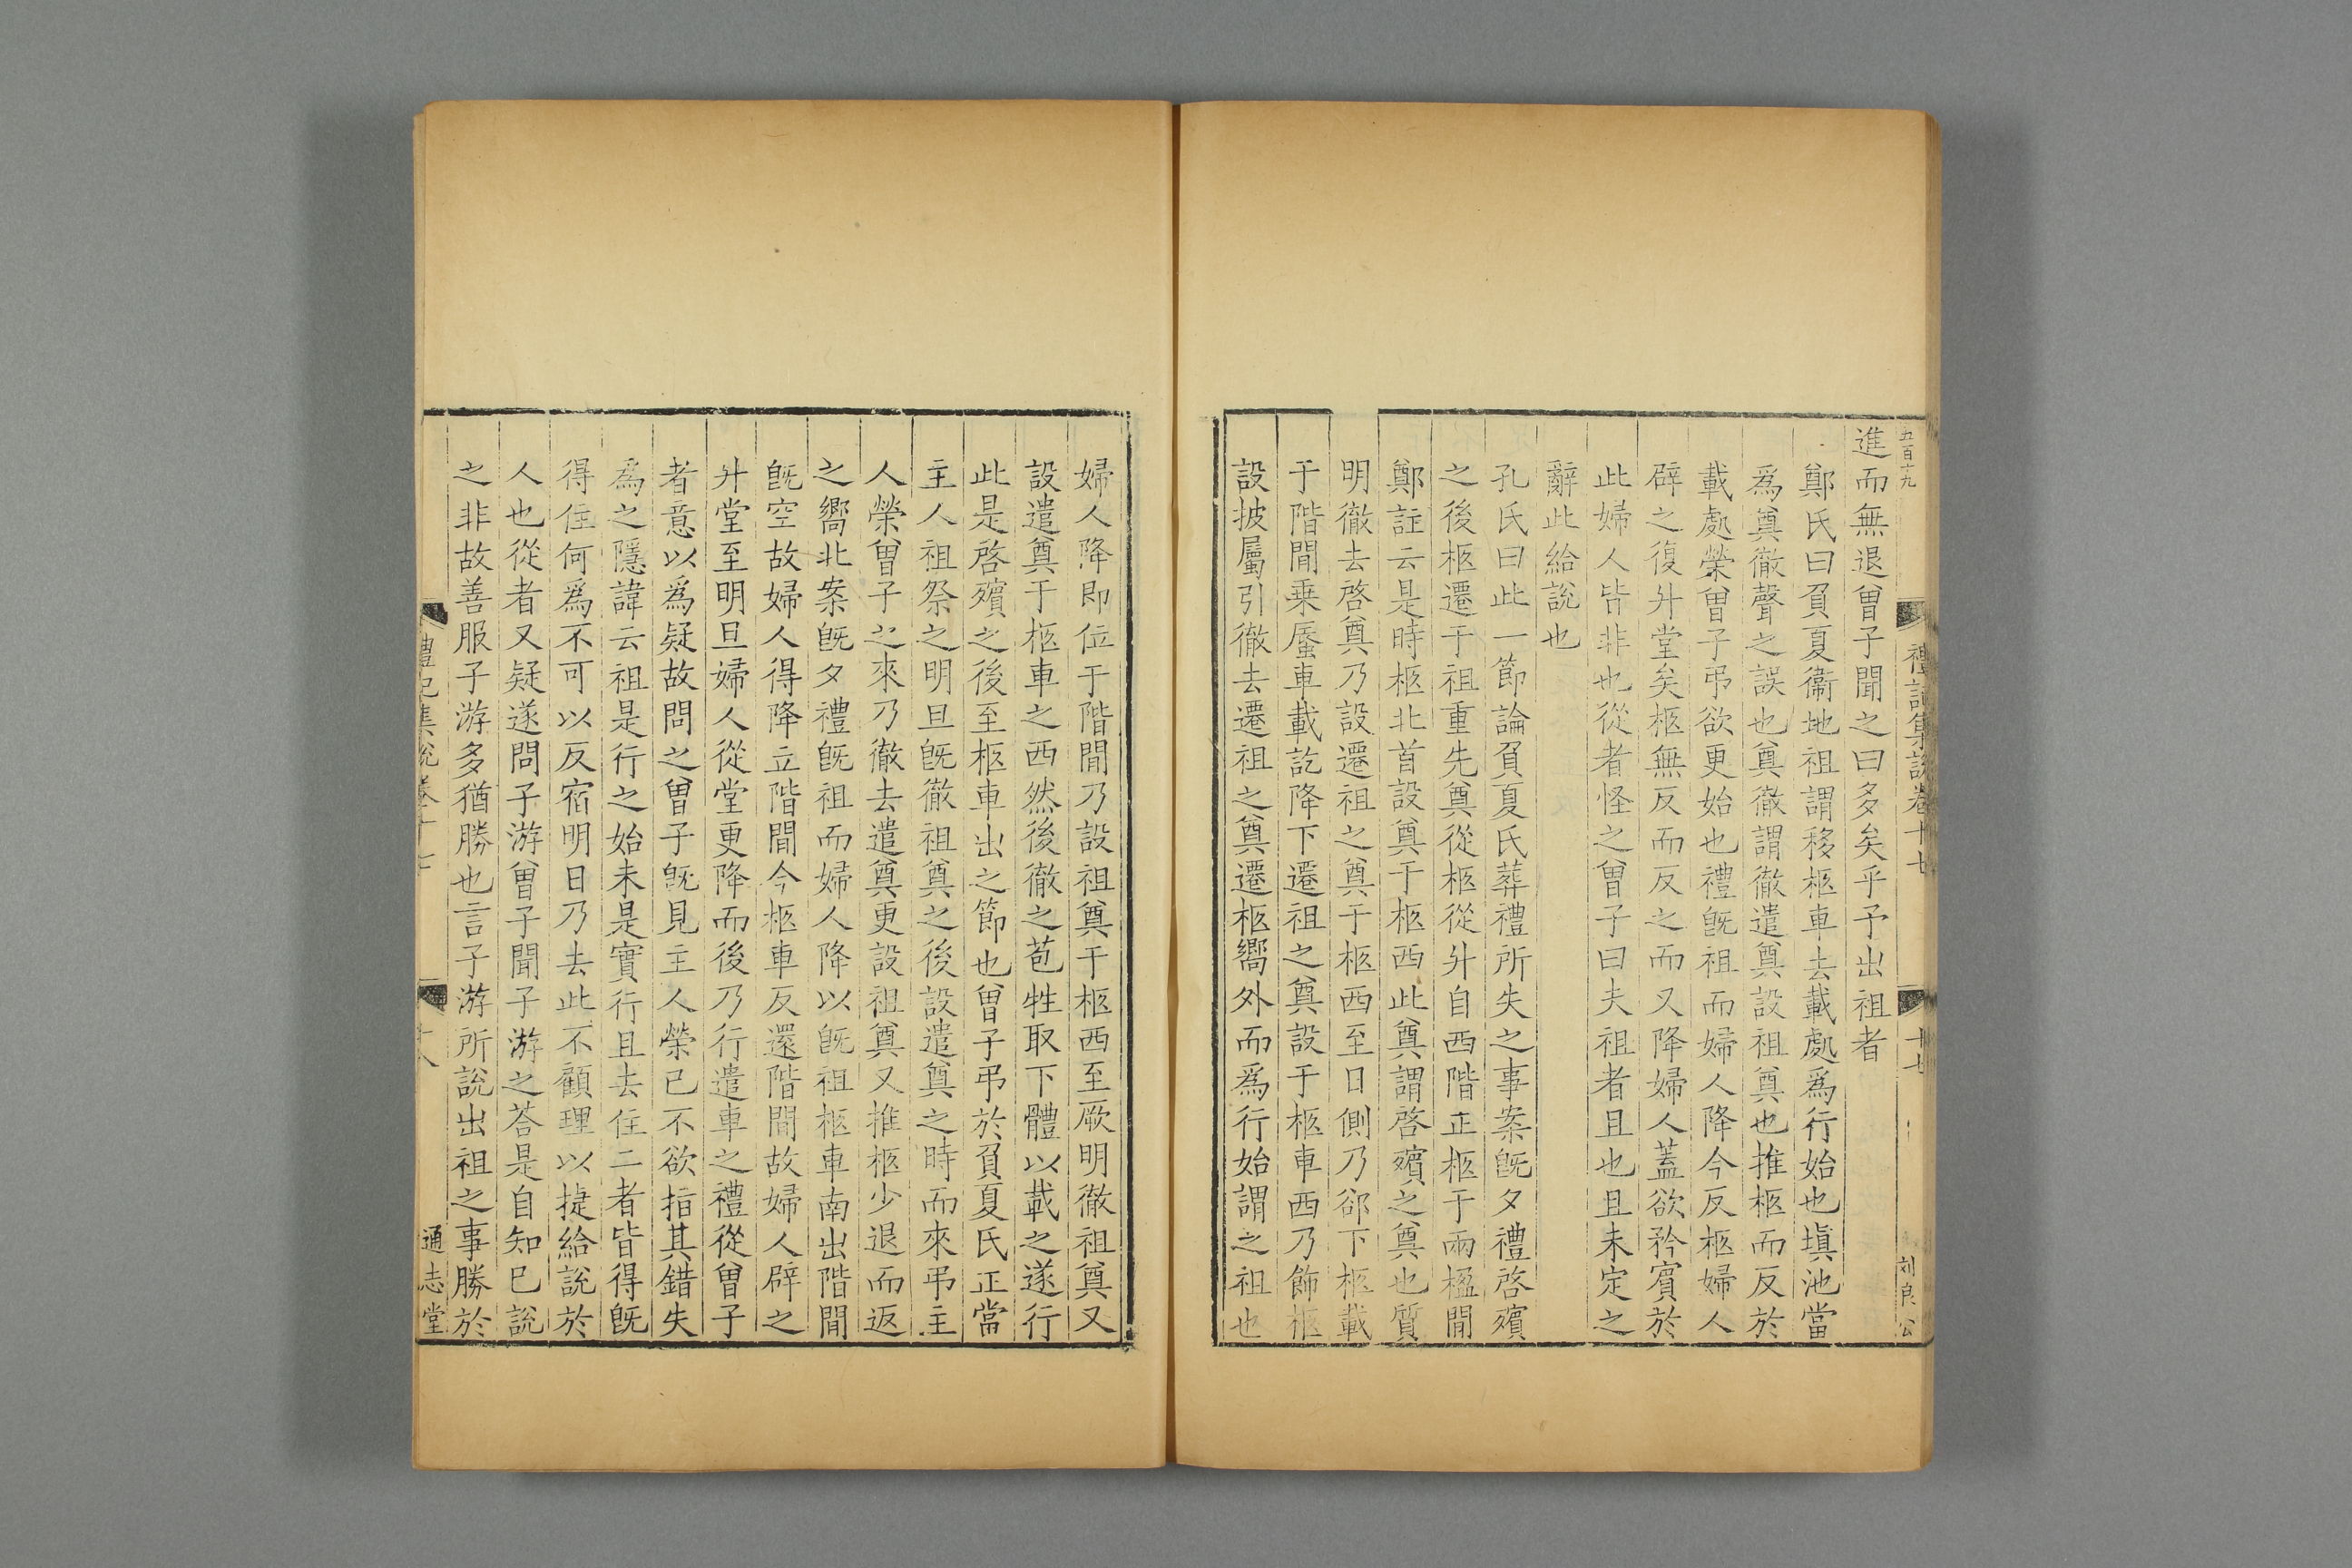 五百十九
禮記集說卷十七
十七
刘良公
進而無退曾子聞之曰多矣乎予出祖者
鄭氏曰負夏衞地祖謂移柩車去載處爲行始也塡池當
爲奠徹聲之誤也奠徹謂徹遣奠設祖奠也推柩而反於
載處榮曾子弔欲更始也禮旣祖而婦人降今反柩婦人
辟之復升堂矣柩無反而反之而又降婦人蓋欲矜賓於
此婦人皆非也從者怪之曾子曰夫祖者且也且未定之
辭此給說也
孔氏曰此一節論負夏氏葬禮所失之事案旣夕禮啓殯
之後柩遷于祖重先奠從柩從升自西階正柩于兩楹閒
鄭註云是時柩北首設奠于柩西此奠謂啓殯之奠也質
明徹去啓奠乃設遷祖之奠于柩西至日側乃郤下柩載
于階閒乗蜃車載訖降下遷祖之奠設于柩車西乃飾柩
設披屬引徹去遷祖之奠遷柩嚮外而爲行始謂之祖也
婦人降即位于階閒乃設祖奠于柩西至厥明徹祖奠又
設遣奠于柩車之西然後徹之苞牲取下體以載之遂行
此是啓殯之後至柩車出之節也曾子弔於負夏氏正當
主人祖祭之明旦旣徹祖奠之後設遣奠之時而來弔主
人榮曾子之來乃徹去遣奠更設祖奠又推柩少退而返
之嚮北案旣夕禮旣祖而婦人降以旣祖柩車南出階閒
旣空故婦人得降立階間今柩車反還階間故婦人辟之
升堂至明旦婦人從堂更降而後乃行遣車之禮從曾子
者意以爲疑故問之曾子旣見主人榮己不欲指其錯失
爲之隱諱云祖是行之始未是實行且去住二者皆得旣
得住何爲不可以反宿明日乃去此不顧理以捷給說於
人也從者又疑遂問子游曾子聞子游之荅是自知己說
之非故善服子游多猶勝也言子游所說出祖之事勝於
禮記集說卷十七
十八
通志堂